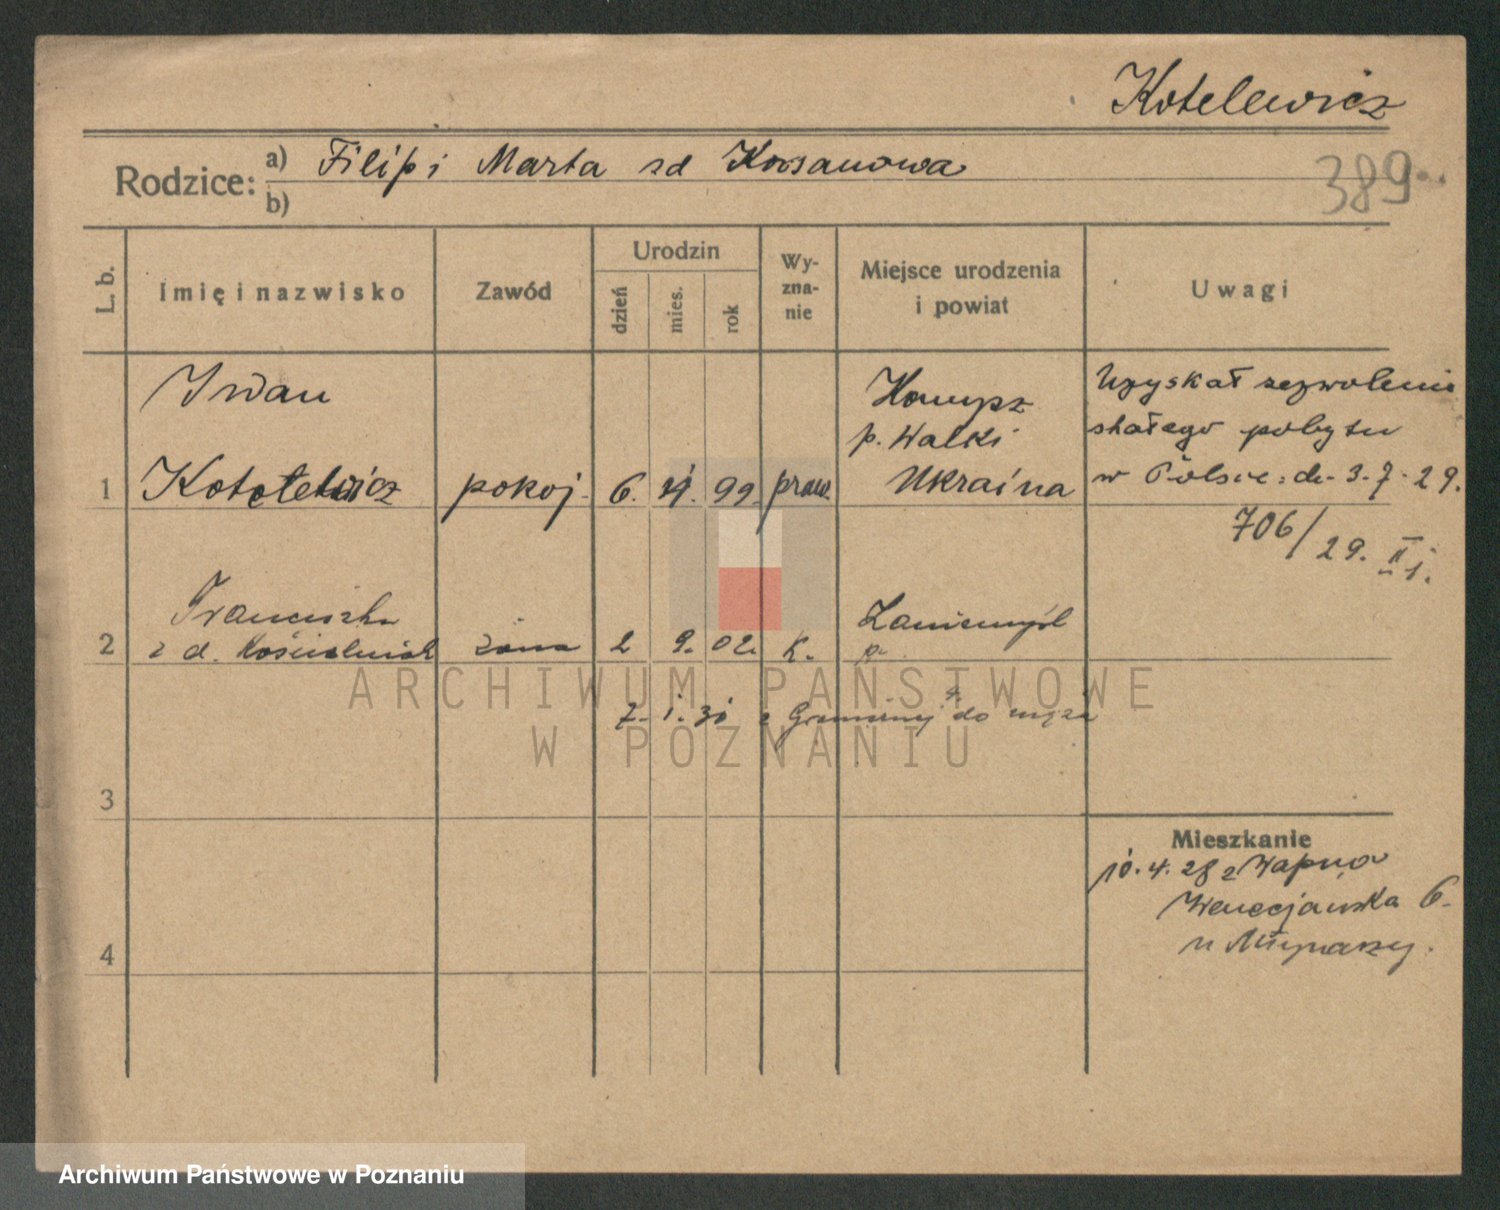 Kotelewicz
Rodzice: a) Filip i Marta zd Korsanowa
b)
389
L. b. Imię i nazwisko Zawód Urodzin dzień mies. rok Wy-zna-nie Miejsce urodzenia i powiat Uwagi
Iwan
p. Walki
Uzyskał zezwolenie
stałego pobytu
1 Kotelewicz pokoj. 6. 99. praw. Ukraina
w Polsce: do 3.7.29.
706/29. II j.
Franciszka
2 z d. Kościelniak żona 2 9. 02. K. Zaniemyśl
p.
7. 1. 31 z do męża
ARCHIWUM PAŃSTWOWE
W POZNANIU
3
Mieszkanie
10.4.28 z Wapna
Wenecjańska 6.
4
u Młynarzy.
Archiwum Państwowe w Poznaniu